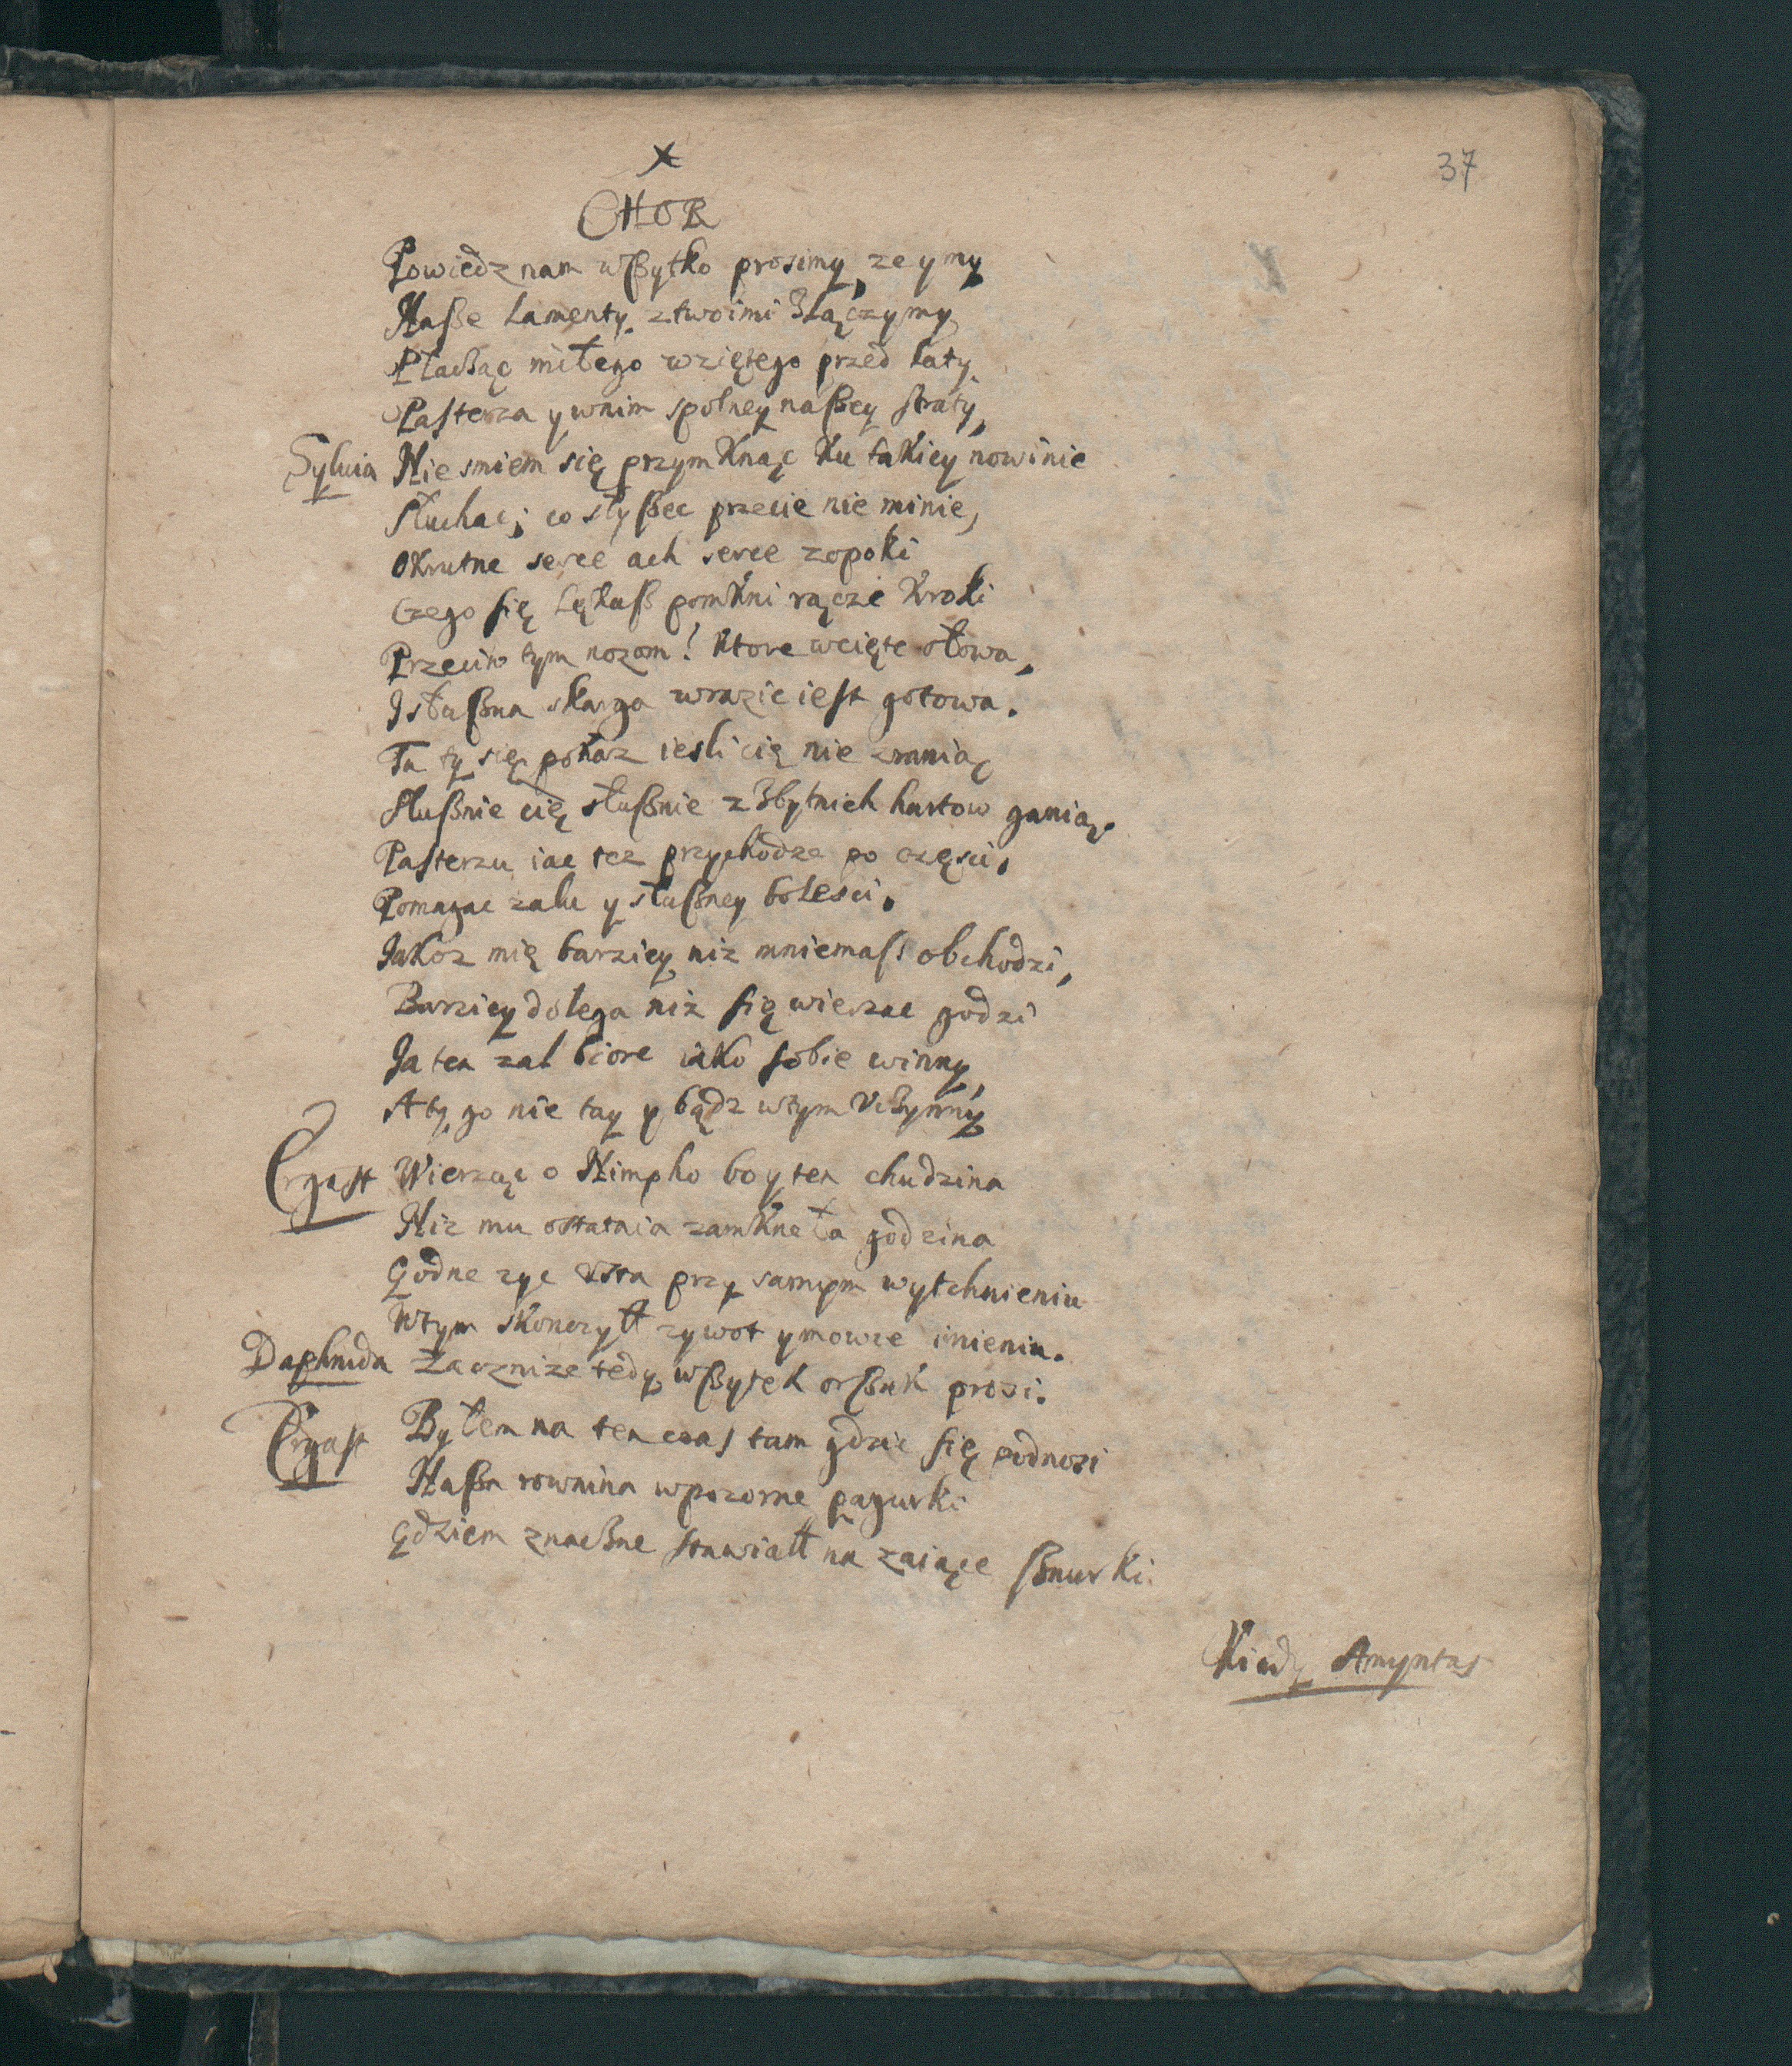 37
CHOR
Powiedz nam wßytko prosimy, ze y my
Naße Lamenty z twoimi złączymy
Płacząc miłego wziętego przed laty
Pasterza y wnim spolney naßey straty,
Sylvia Nie smiem się przymknąc ku takiey nowinie
Słuchac; co słyßec przecie nie minie,
Okrutne serce ach serce z opoki
Czego się Lękaß pomkni rącze kroki
Przeciw tym nozom! ktore wcięte słowa,
I słußna skarga wrazic iest gotowa.
Tu ty się pokaz iesli cię nie zranią
Słußnie cię słußnie z zbytnich hartow ganią.
Pasterzu iac tez przychodze po częsci,
Pomagac zalu y słußney bolesci.
Jakoz mię barziey niz mniemass obchodzi,
Barziey dolega niz się wierzac godzi
Ja ten zal biore iako sobie winny,
A ty go nie tay y bądz wtym Uczynny
Ergast Wierząc o Nimpho bo y ten chudzina
Niz mu ostatnia zamkneła godzina
Godne zyc Usta przy samym wytchnieniu
Wtym skonczyłł zywot y mowie imieniu.
Daphnida Zacznize tedy, wßytek orßak prosi.
Ergast Byłem na ten czas tam gdzie się podnosi
Naßa rownina w pozorne pagurki
Gdziem znaczne stawiałł na zaiące ßnurki.
Kiedy Amyntas